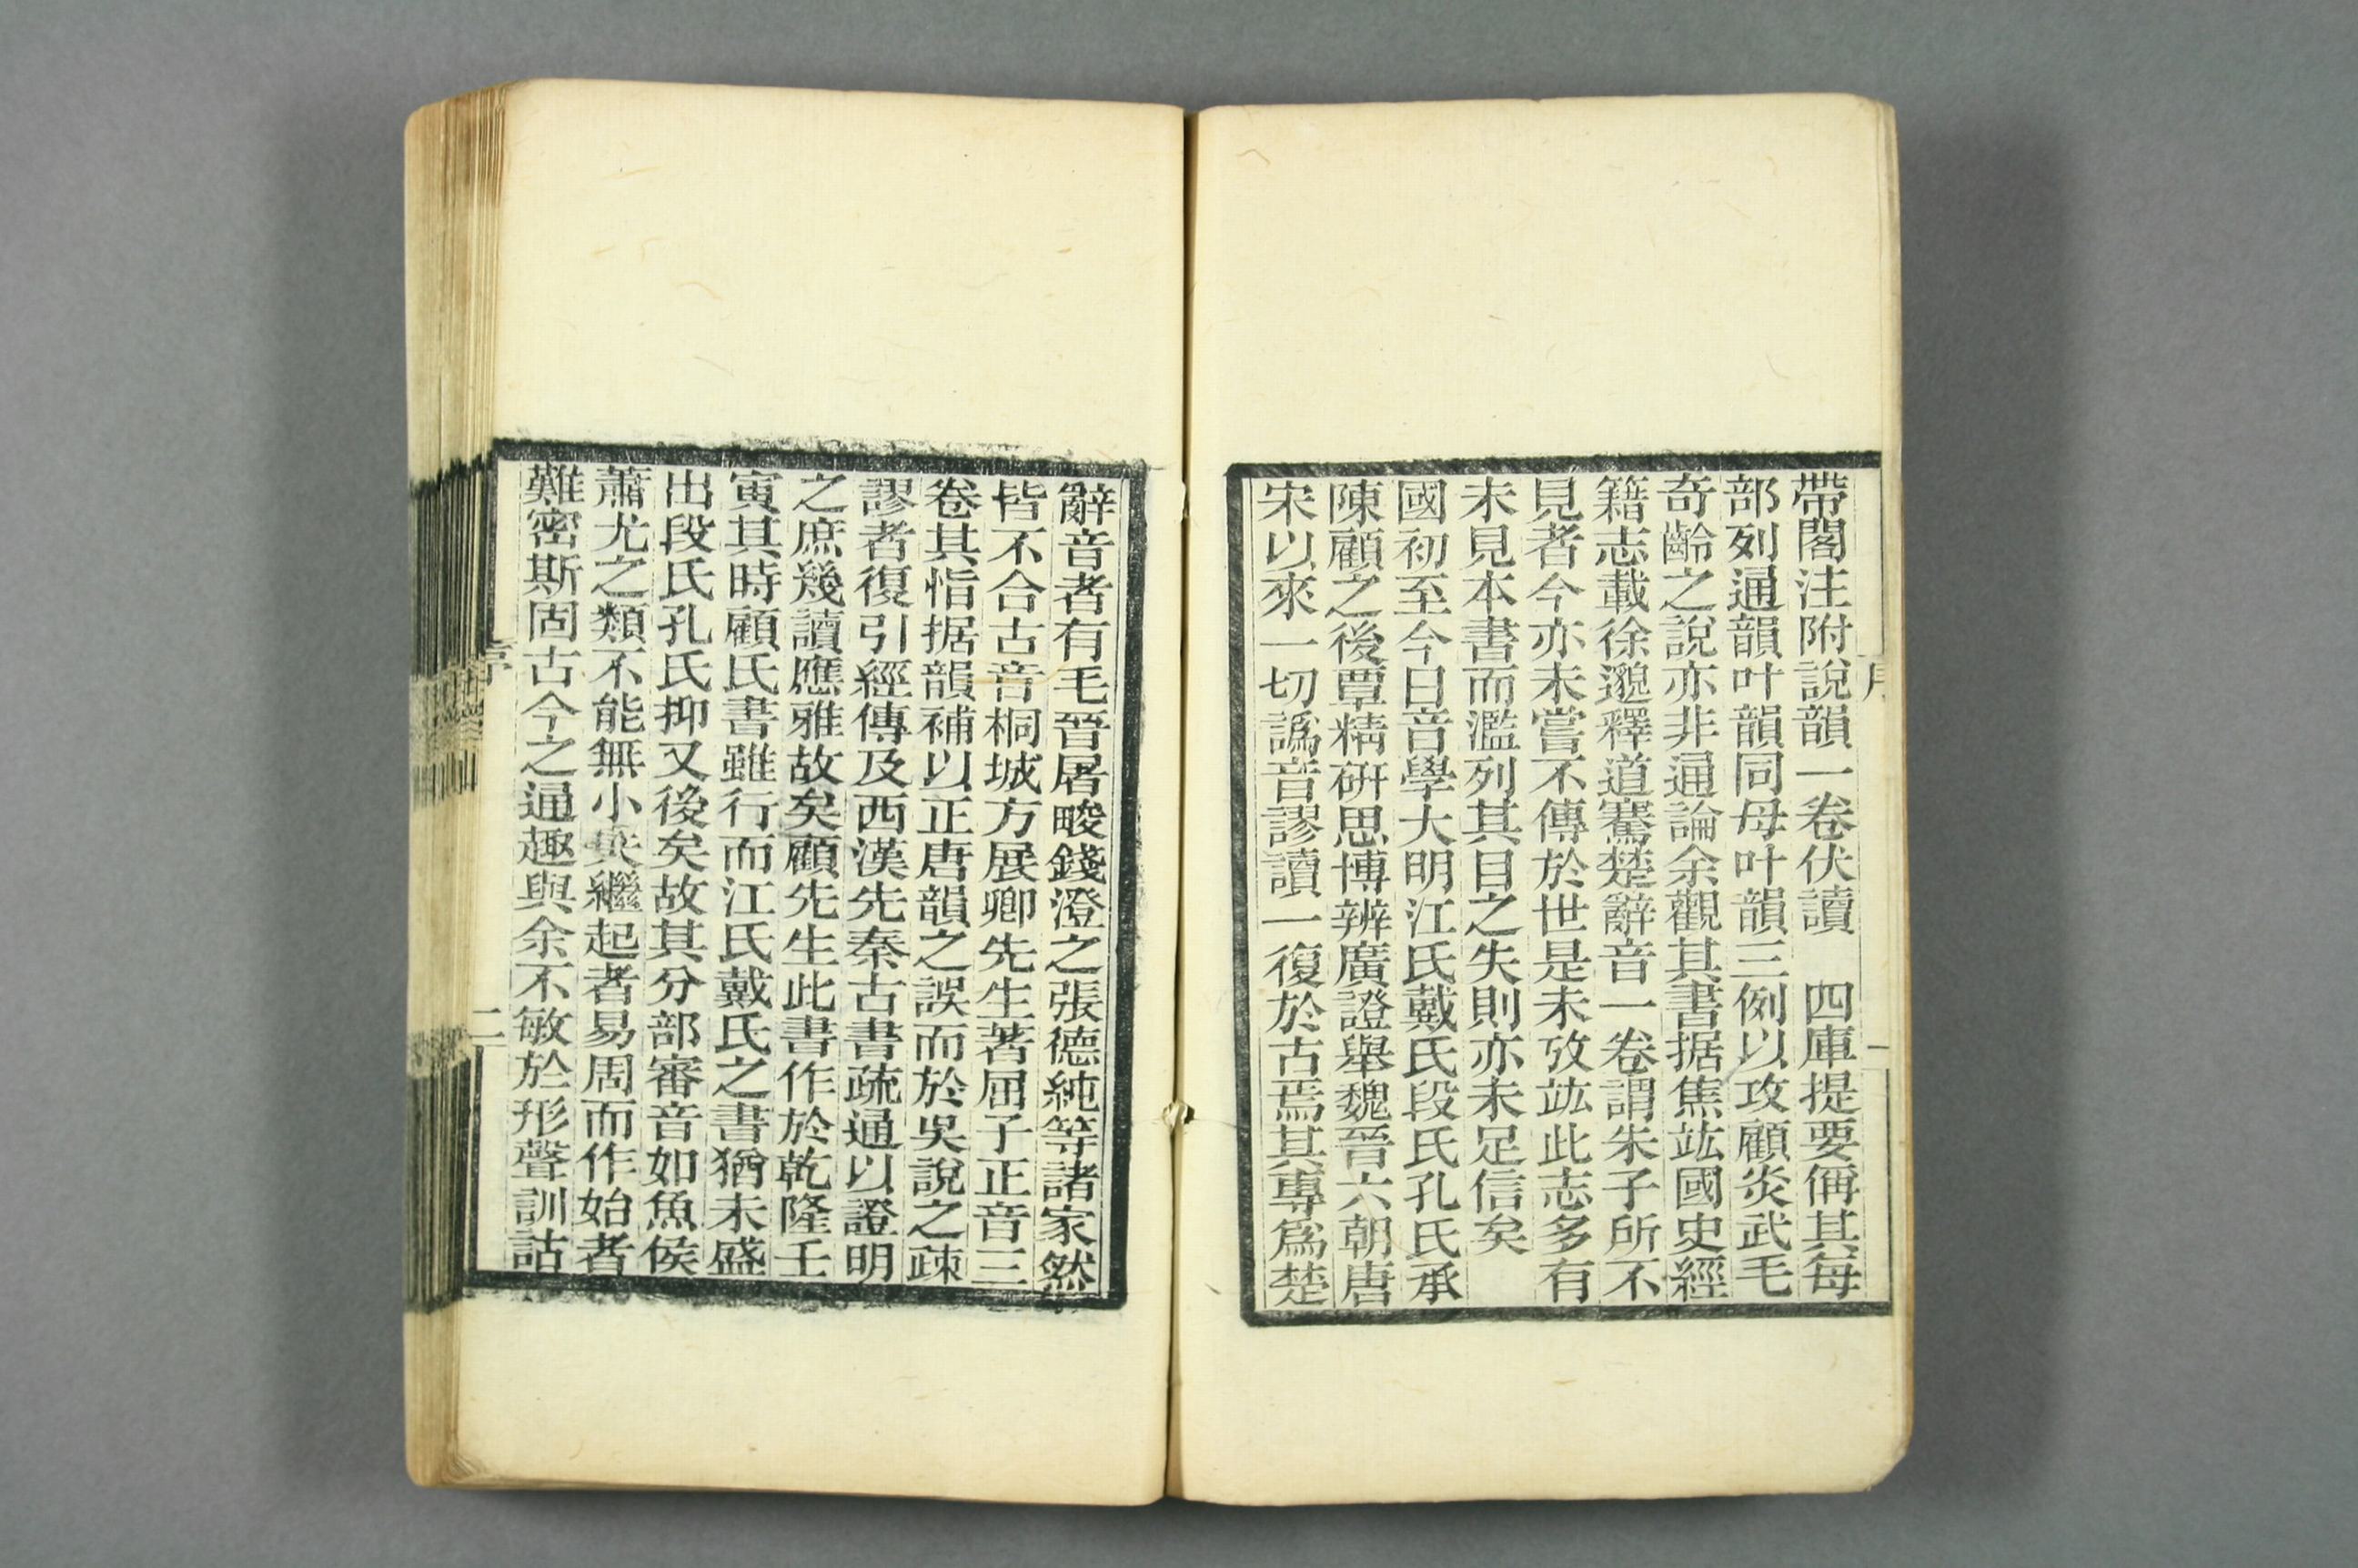 帶閣注附說韻一卷伏讀　四庫提要偁其每
部列通韻叶韻同母叶韻三例以攻顧炎武毛
奇齡之說亦非通論余觀其書据焦竑國史經
籍志載徐邈釋道騫楚辭音一卷謂朱子所不
見者今亦未嘗不傳於世是未攷竑此志多有
未見本書而濫列其目之失則亦未足信矣
國初至今日音學大明江氏戴氏段氏孔氏承
陳顧之後覃精研思博辨廣證舉魏晉六朝唐
宋以來一切譌音謬讀一復於古焉其專爲楚
序
一
辭音者有毛晉屠畯錢澄之張德純等諸家然
皆不合古音桐城方展卿先生著屈子正音三
卷其恉据韻補以正唐韻之誤而於吳說之疎
謬者復引經傳及西漢先秦古書疏通以證明
之庶幾讀應雅故矣顧先生此書作於乾隆壬
寅其時顧氏書雖行而江氏戴氏之書猶未盛
出段氏孔氏抑又後矣故其分部審音如魚侯
蕭尤之類不能無小失繼起者易周而作始者
難密斯固古今之通趣與余不敏於形聲訓詁
序
二